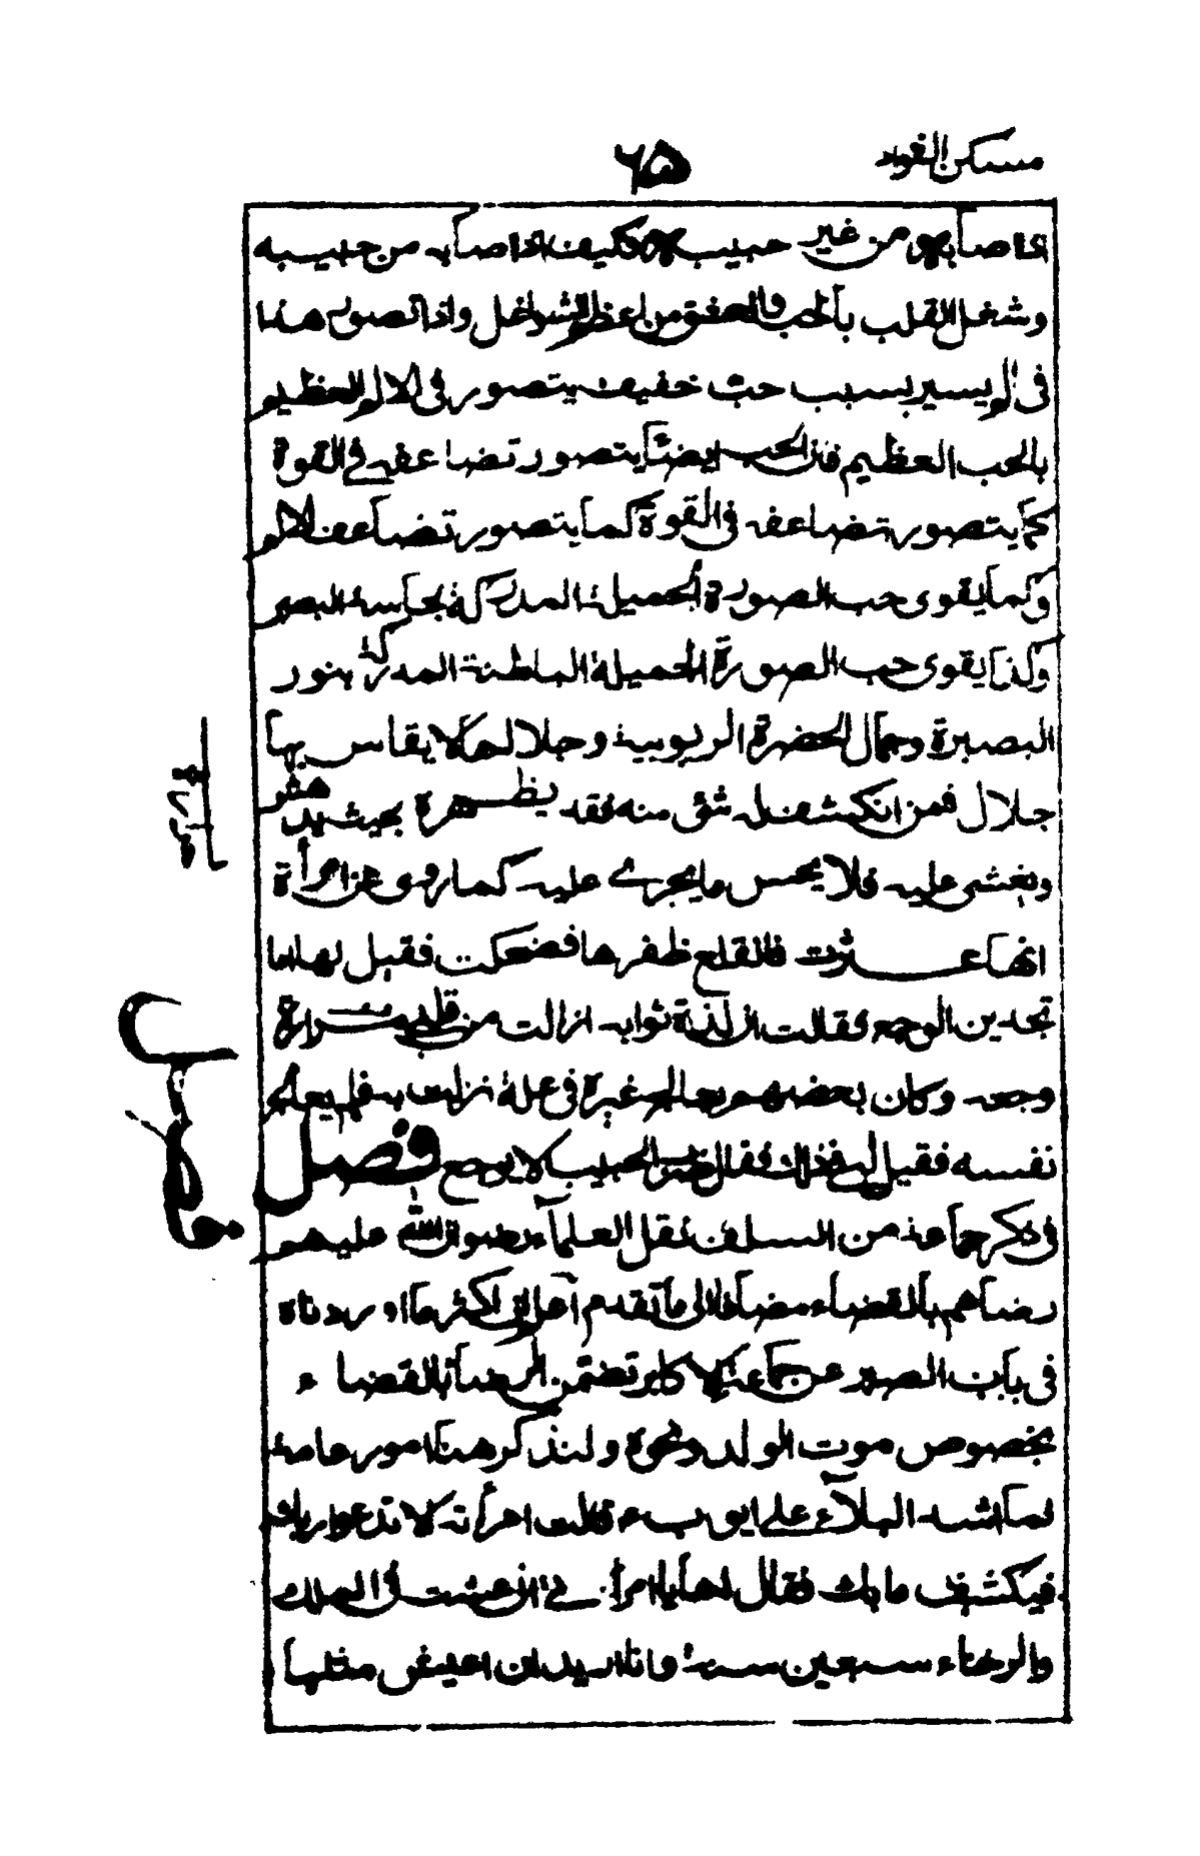 مسكن الفواد
۶۵
اذا اصابه من غير حبيبه فكيف اذا اصابه من حبيبه
وشغل القلب بالحب والعشق من اعظم الشواغل واذا تصور هذا
فى الم يسير بسبب حب خفيف يتصور فى الالم العظيم
بالحب العظيم فان الحب ايضاً يتصور تضاعفه فى القوة
كما يتصور تضاعفه فى القوة كما يتصور تضاعف الالم
وكما يقوى حب الصورة الجميلة المدركة بحاسة البصر
وكذا يقوى حب الصورة الجميلة الباطنة المدركة بنور
البصيرة وجمال الحضرة الربوبية وجلالها لا يقاس بها
جلال فمن انكشف له شئ منه فقد يظهره بحيث يدهش
ويغشى عليه فلا يحس ما يجرى عليه كما روى عن امرأة
انها عثرت فانقلع ظفرها فضحكت فقيل لها اما
تجدين الوجع فقالت ان لذة ثوابه ازالت من قلبى مرارة
وجعه وكان بعضهم يعالج غيره فى علة نزلت به فلم يعالج
نفسه فقيل له فى ذلك فقال ضرب الحبيب لا يوجع فصل
فى ذكر جماعة من السلف نقل العلماء رضوان الله عليهم
رضاهم بالقضاء مضافا الى ما تقدم اعلم ان اكثر ما اوردناه
فى باب الصبر عن جماعة الاكابر تضمن الرضا بالقضاء
بخصوص موت الولد ونحوه ولنذكر هنا امور عامة
لما اشتد البلاء على ايوب ء قالت امرأته الا تدعو ربك
فيكشف ما بك فقال لها يا امرأة انى عشت فى الملك
والرخاء سبعين سنة وانا اريد ان اعيش مثلها